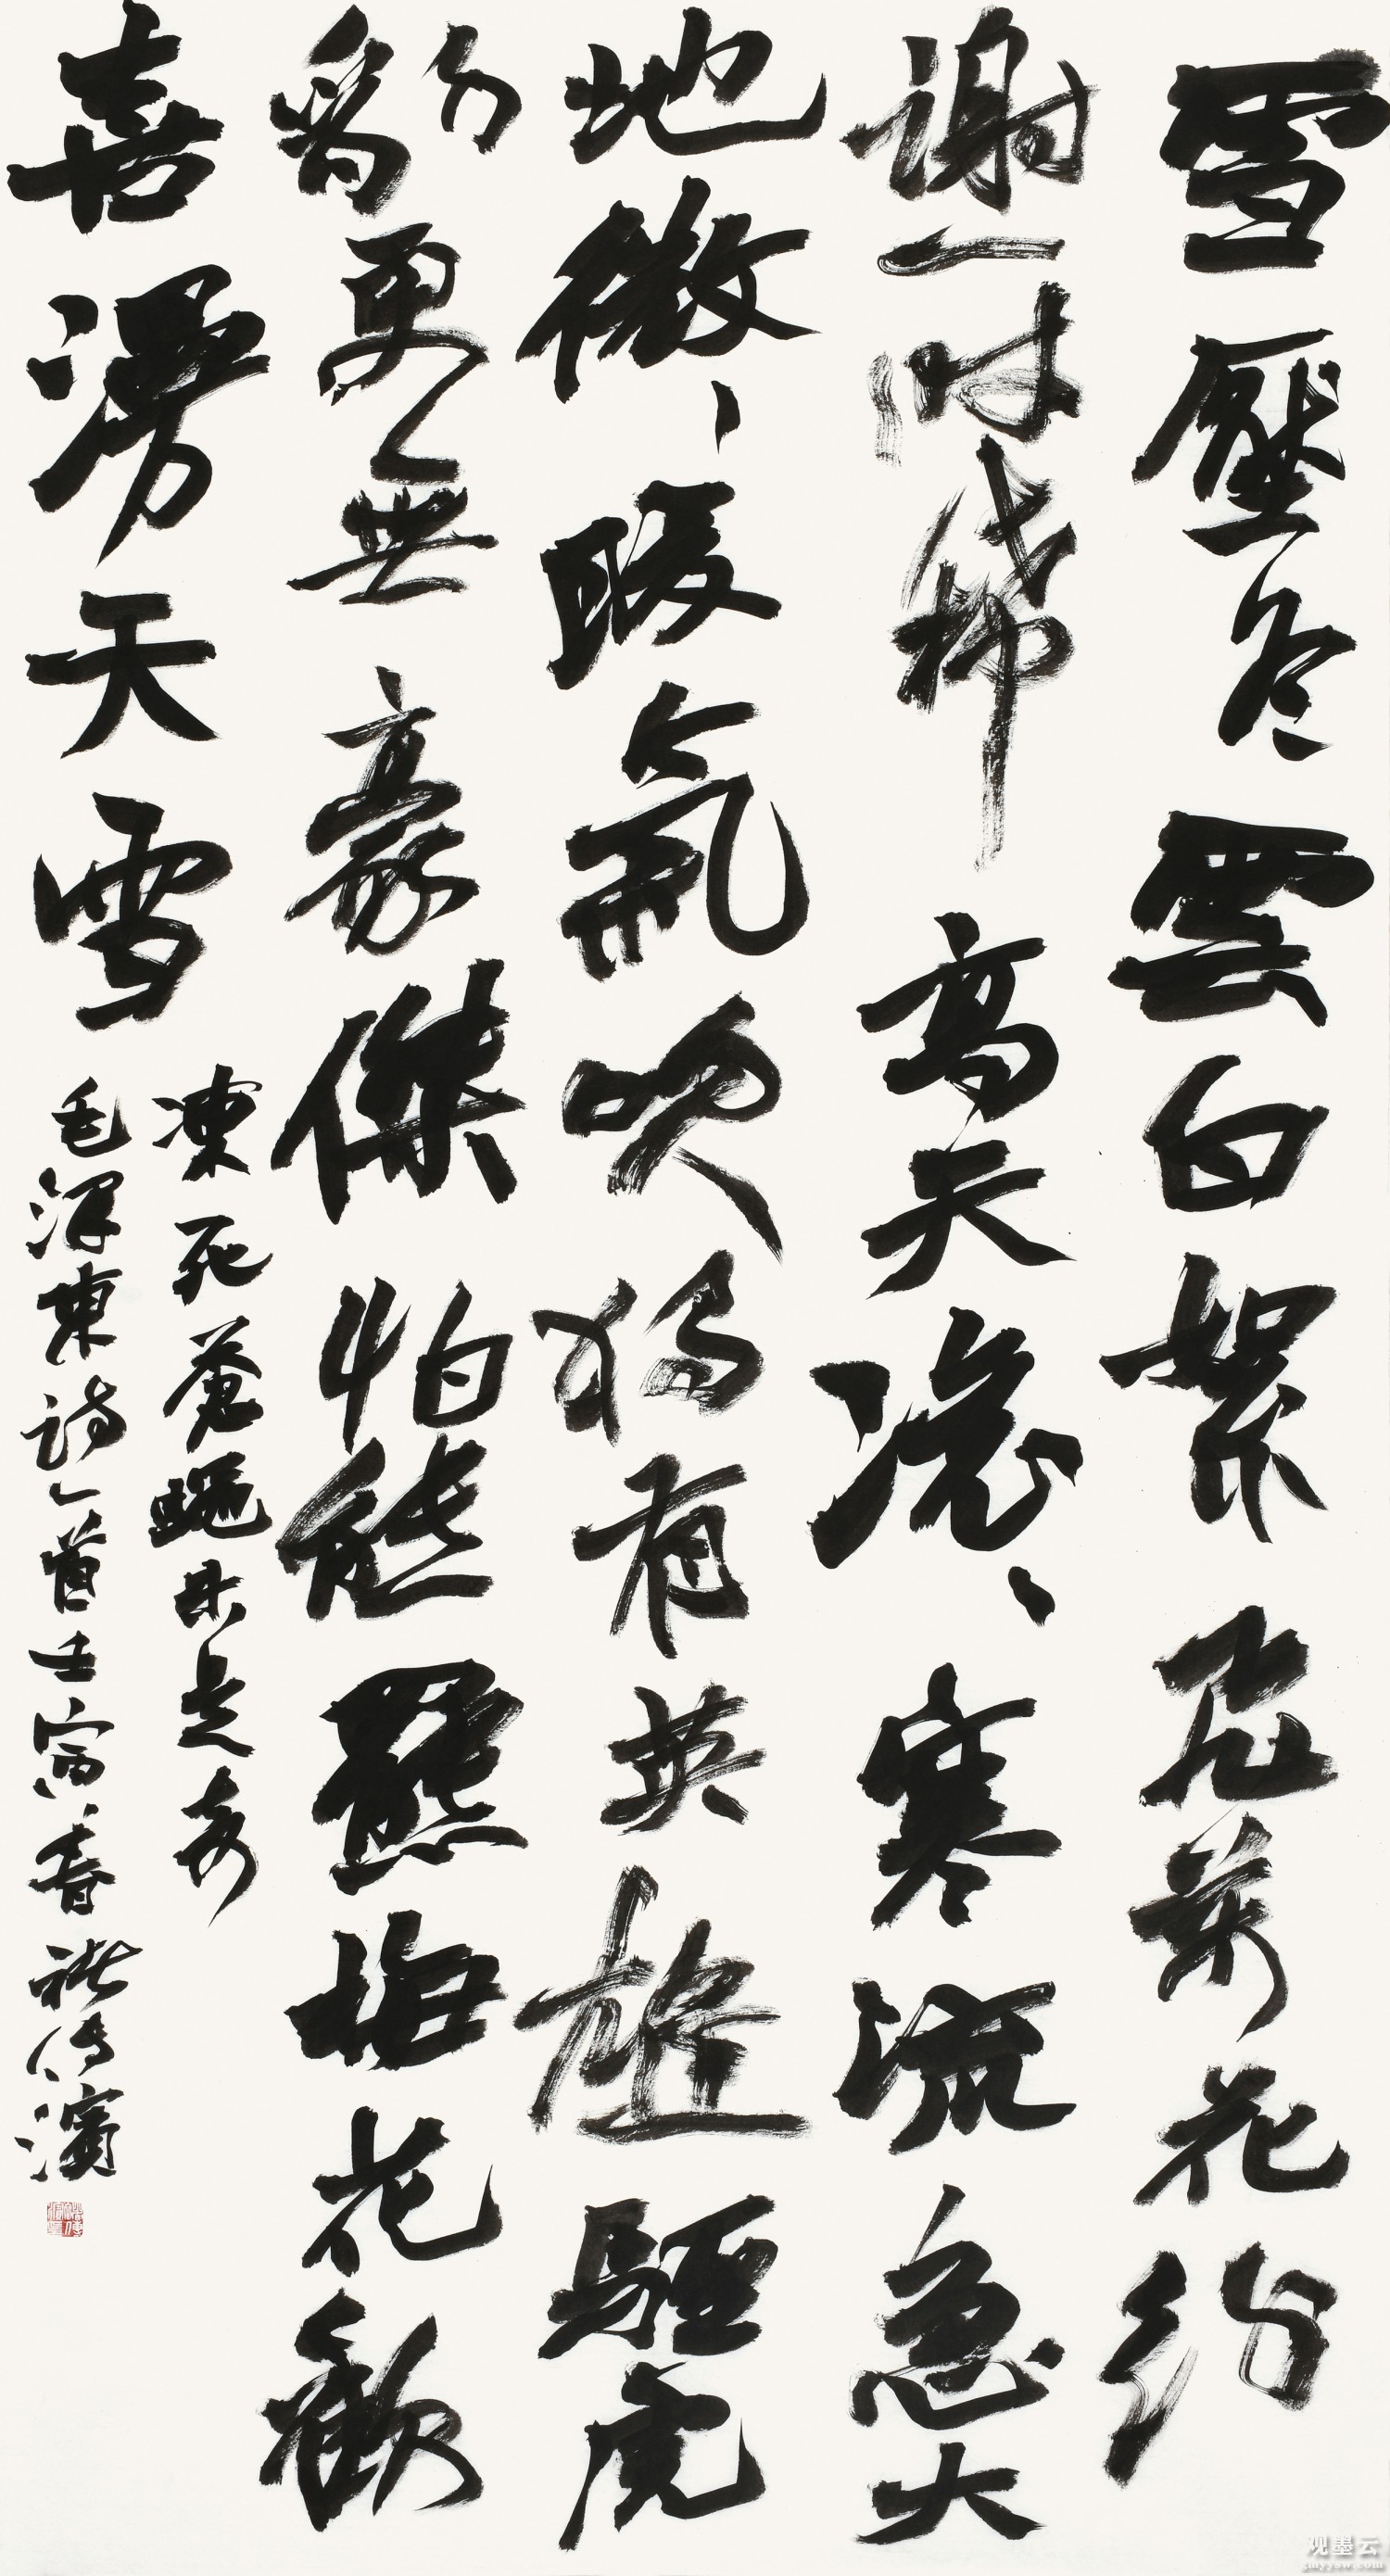 雪壓冬雲白絮飛萬花紛
謝一时稀高天滚、寒流急大
地微、暖氣吹獨有英雄驅虎
豹更無豪傑怕熊羆梅花歡
喜漫天雪
凍死蒼蠅未足奇
毛澤東詩一首壬寅春傳濱
观墨云